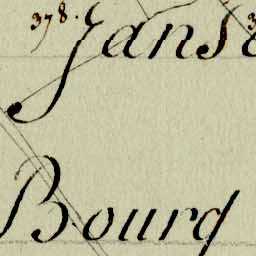 378.
Jans
Bourg